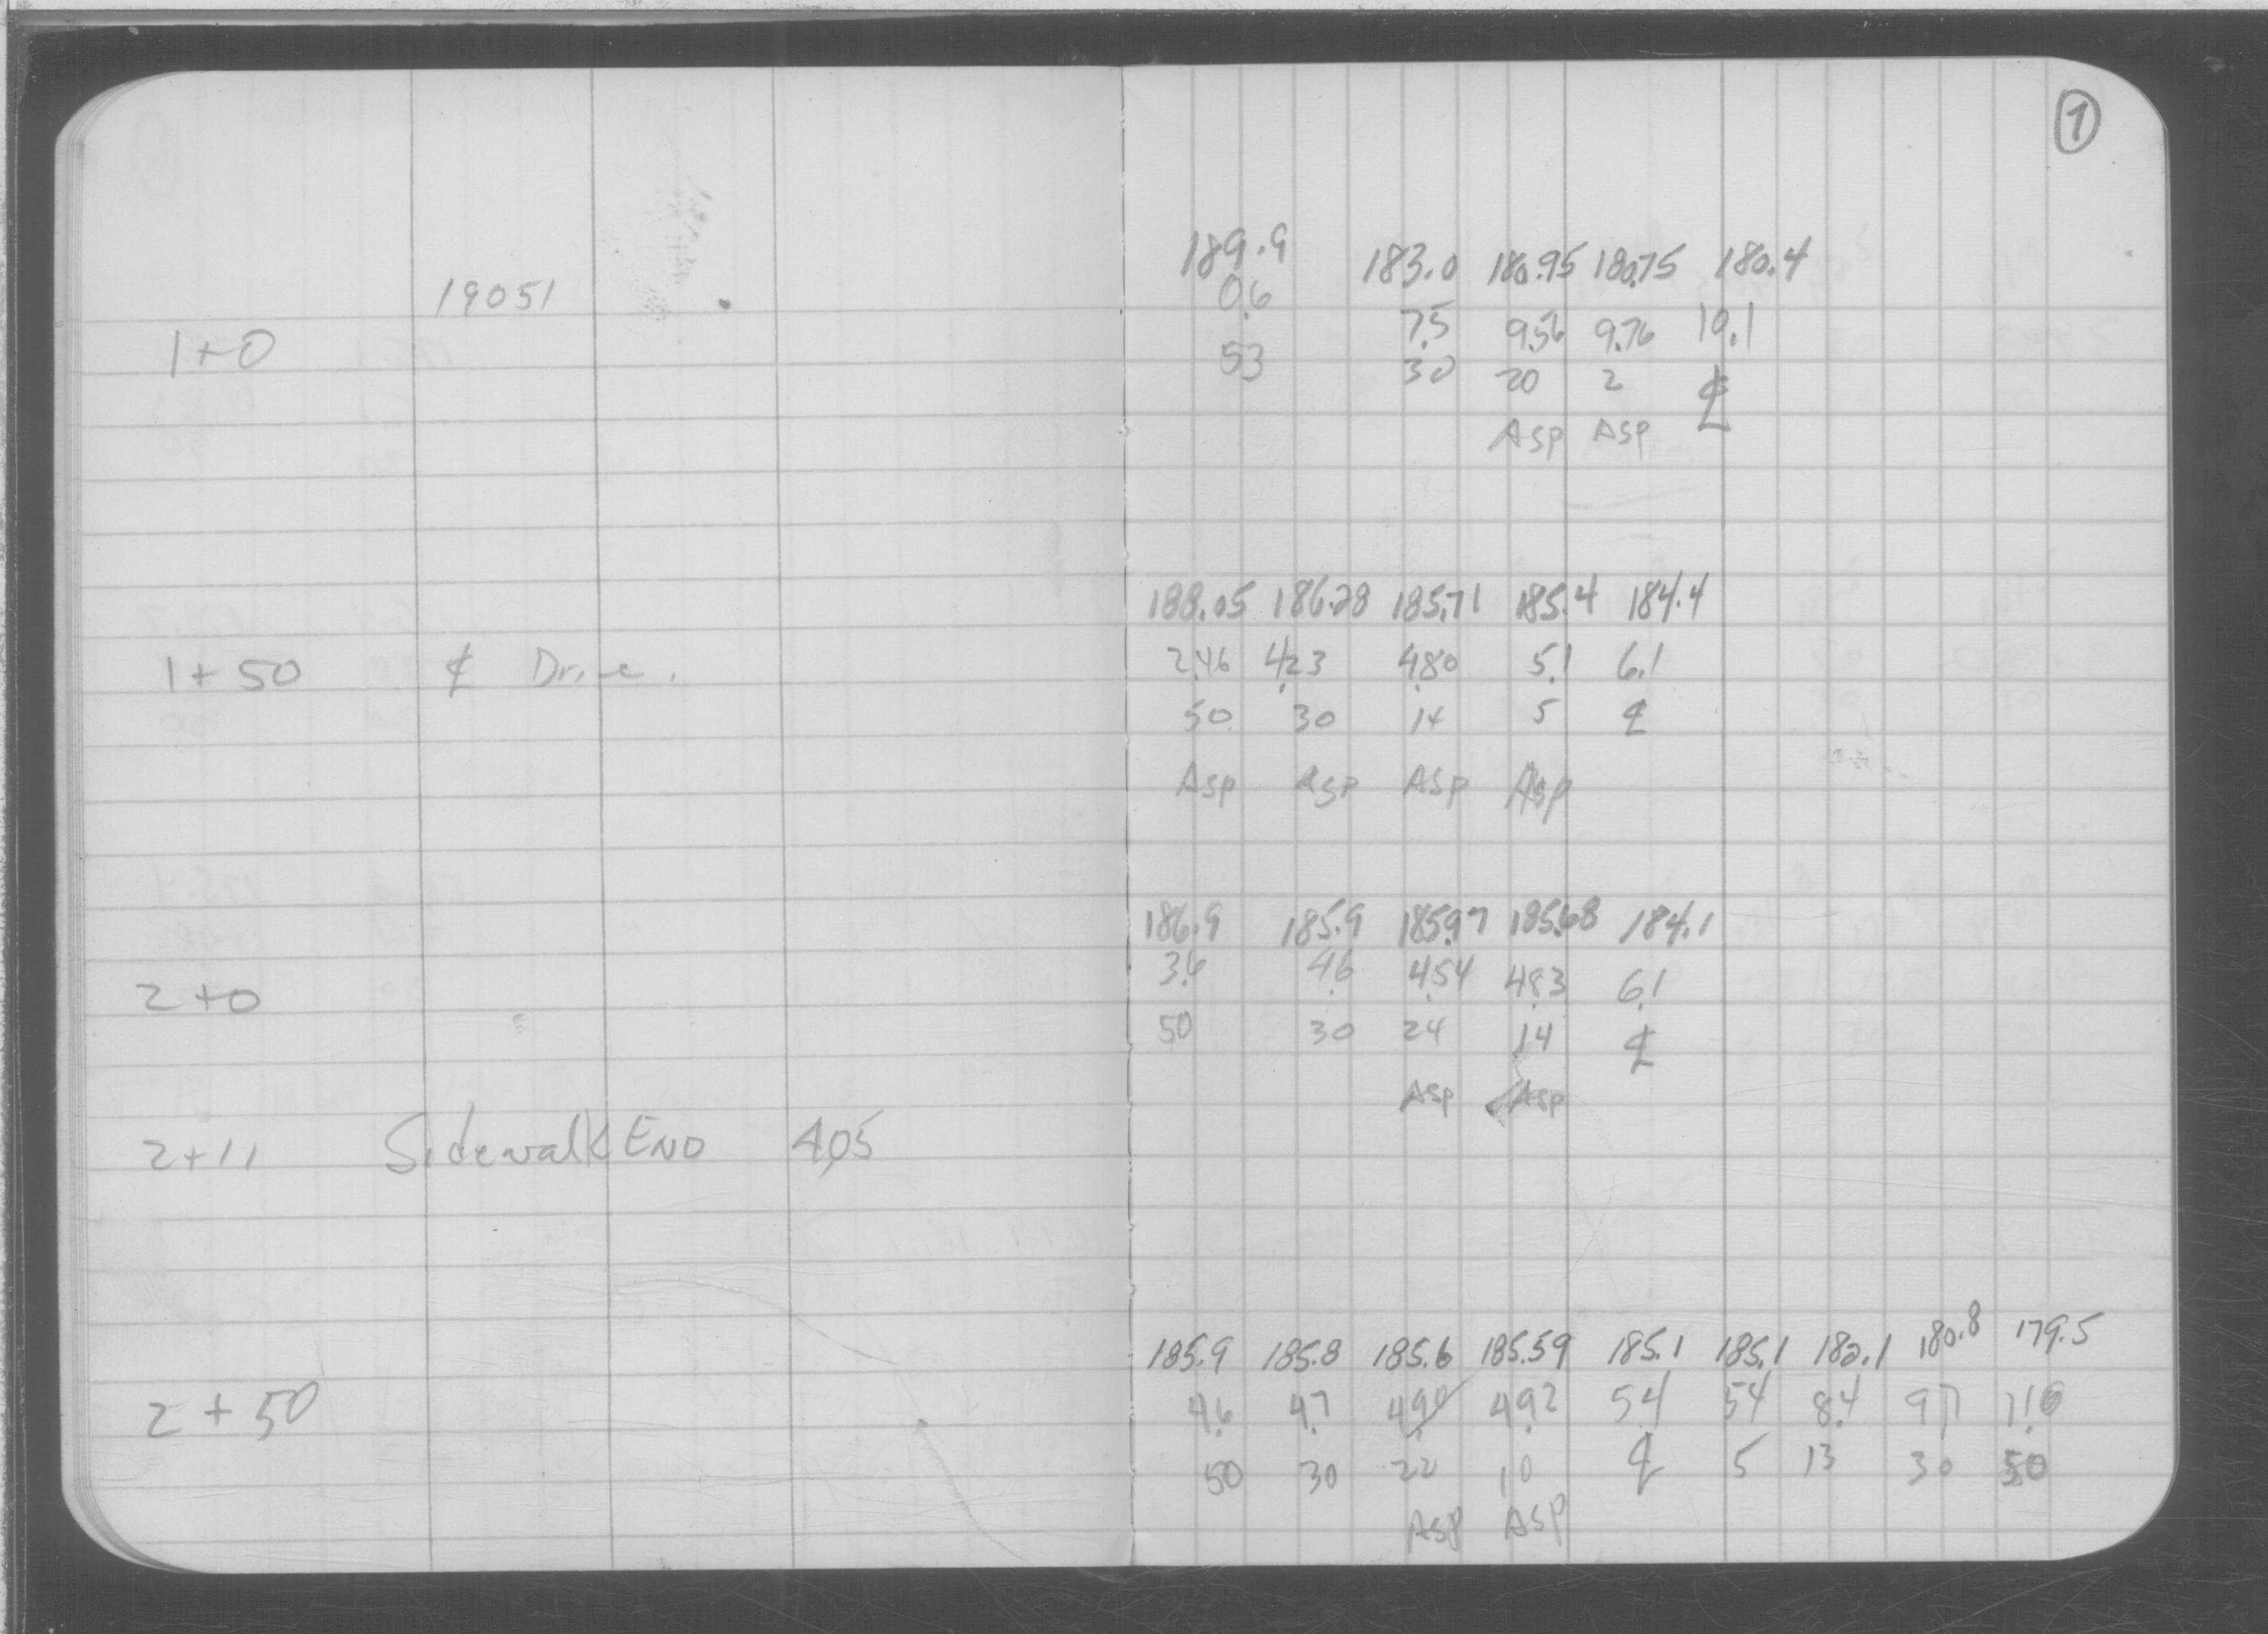 1
189.9 183.0 180.95 180.75 180.4
19051 0.6 7.5 9.56 9.76 10.1
1+0 53 30 20 2 ℄
Asp Asp
188.05 186.28 185.71 185.4 184.4
1+50 ℄ Drive. 2.46 4.23 4.80 5.1 6.1
50 30 14 5 ℄
Asp Asp Asp Asp
186.9 185.9 185.97 185.68 184.1
2+0 3.6 4.6 4.54 4.83 6.1
50 30 24 14 ℄
Asp Asp
2+11 Sidewalk END 4.05
185.9 185.8 185.6 185.59 185.1 185.1 182.1 180.8 179.5
2+50 4.6 4.7 4.90 4.92 5.4 5.4 8.4 9.7 11.0
50 30 22 10 ℄ 5 13 30 50
Asp Asp